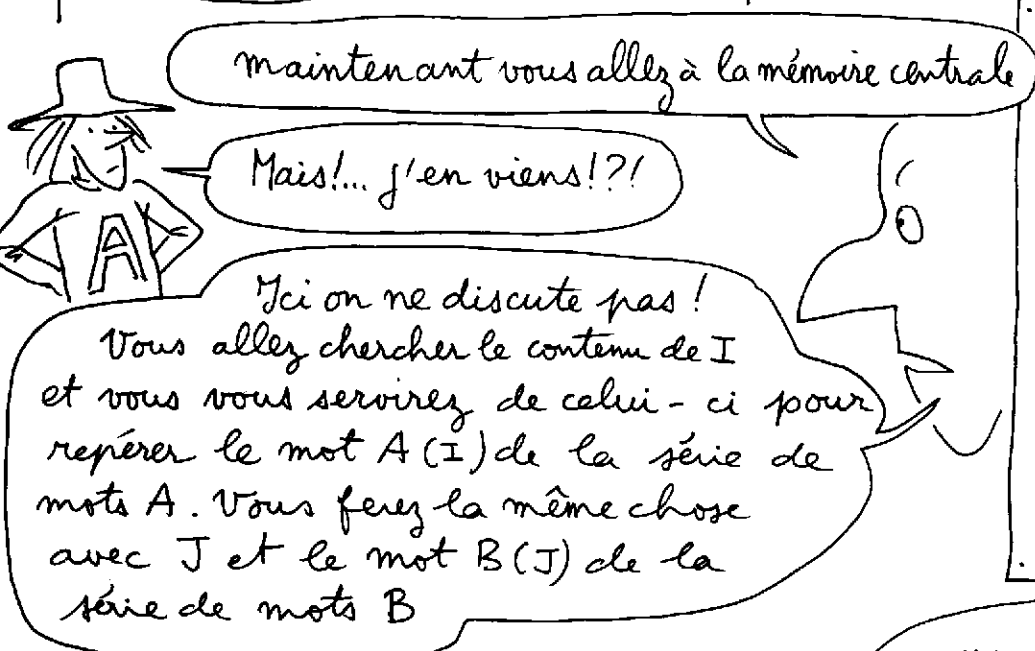 maintenant vous allez à la mémoire centrale
Mais!... j'en viens!?!
A
Ici on ne discute pas !
Vous allez chercher le contenu de I
et vous vous servirez de celui-ci pour
repérer le mot A (I) de la série de
mots A. Vous ferez la même chose
avec J et le mot B (J) de la
série de mots B